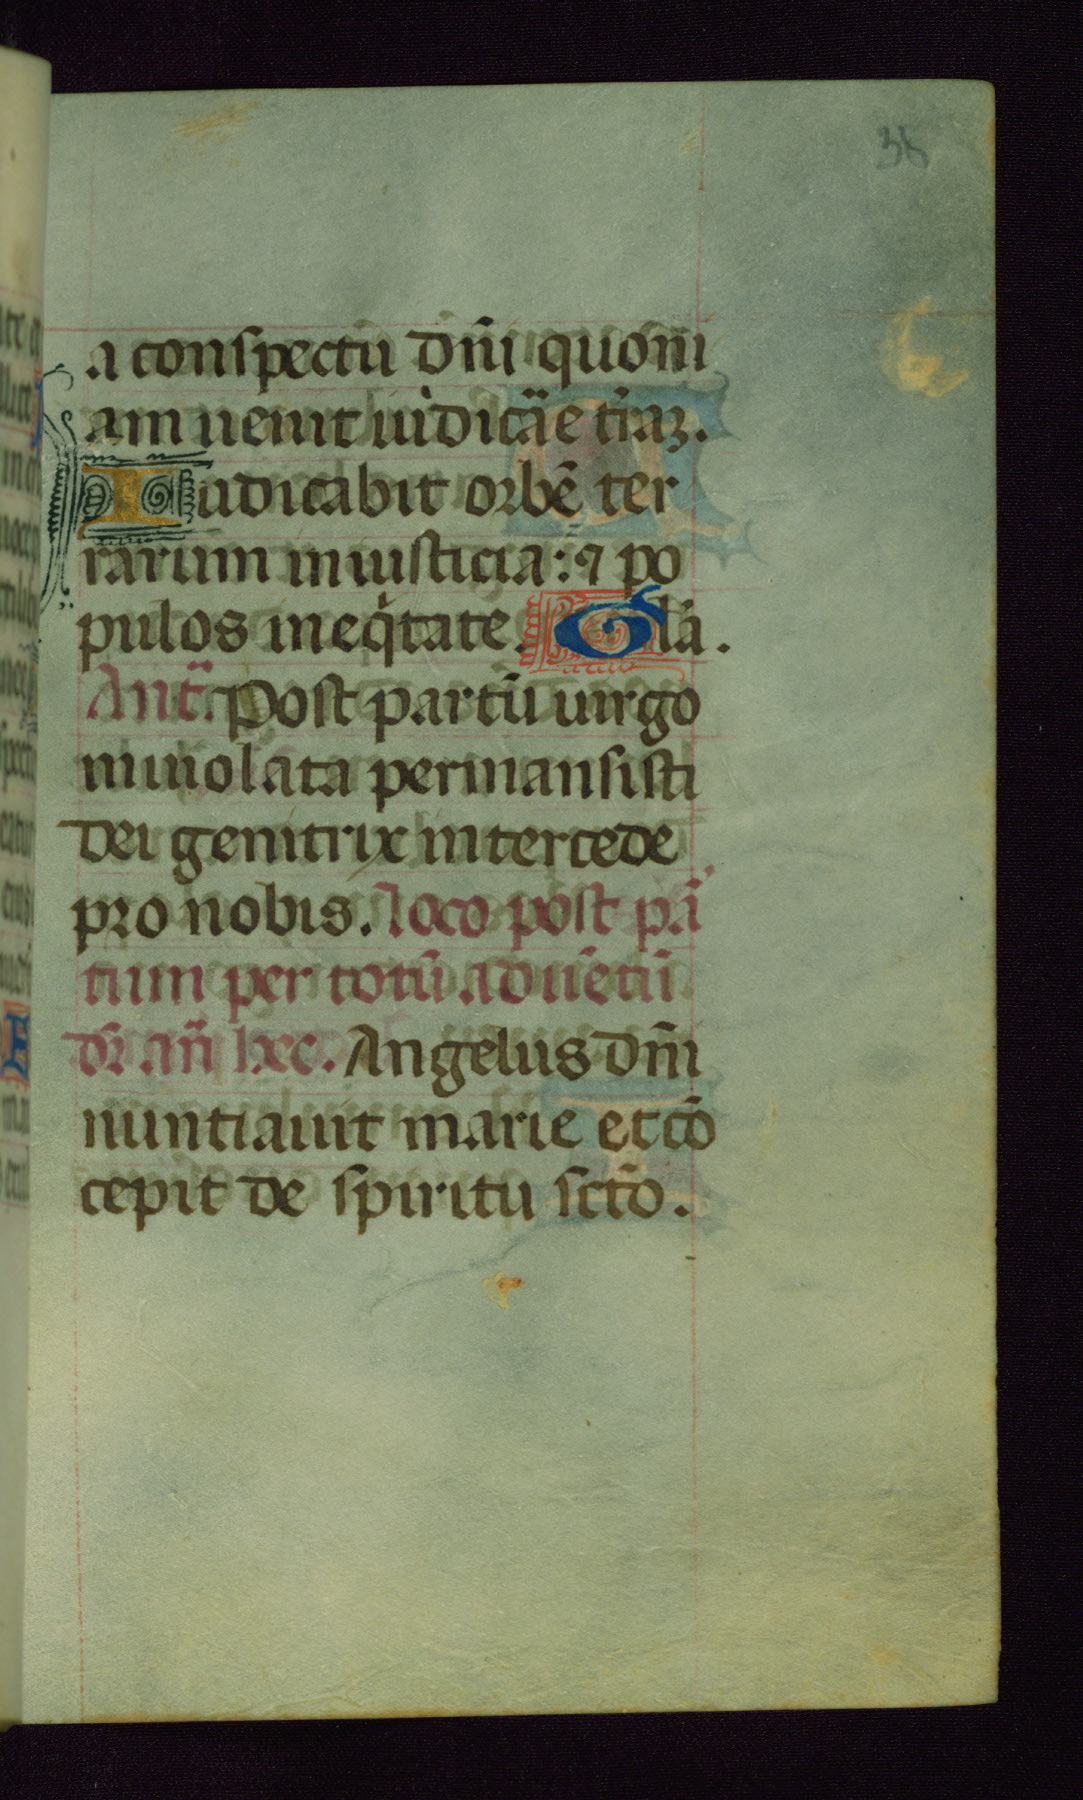 38
a conspectu dn̄i quoni
am uenit iudicāe t̄raꝝ.
Iudicabit orbē ter
rarum in iusticia: ⁊ po
pulos in eqͥtate. Glā.
Ant̄. Post partū uirgo
inuiolata permansisti
dei genitrix intercede
pro nobis. loco post pā
tium per totū aduētū
dr̄ an̄ hec. Angelus dn̄i
nuntiauit marie et cō
cepit de spiritu sct̄o.